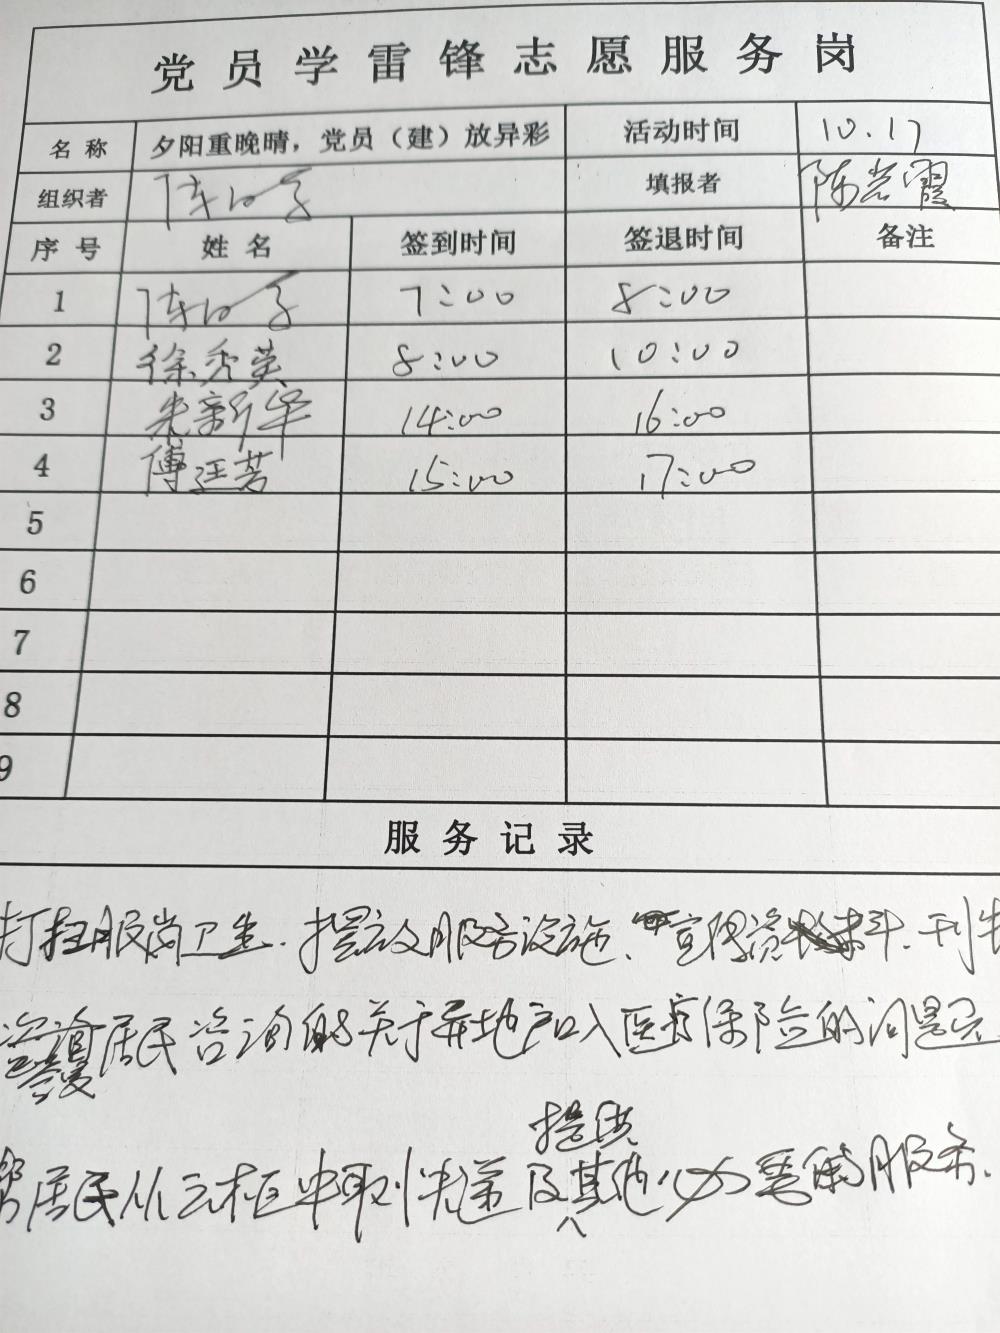 党员学雷锋志愿服务岗
名称 夕阳重晚晴，党员（建）放异彩 活动时间 10.17
组织者 填报者 陈岩霞
序号 姓名 签到时间 签退时间 备注
1 7:00 8:00
2 徐秀英 8:00 10:00
3 朱新华 14:00 16:00
4 傅廷芳 15:00 17:00
5
6
7
8
9
服务记录
打扫服岗卫生. 服务设施、宣传资料.
居民咨询的关于异地户口入医疗保险的问题
提供
居民从云柜中取 快递及其他必要的服务.